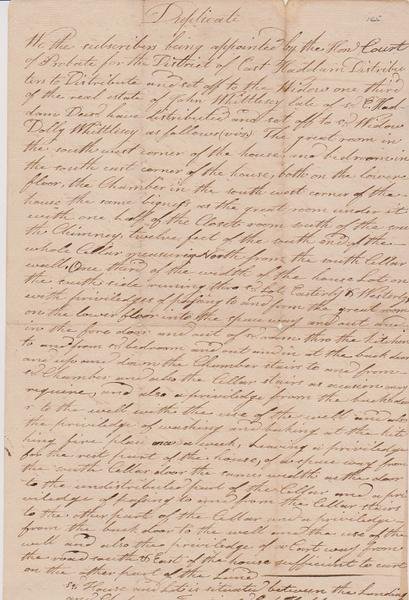 Duplicate
We the subscribers being appointed by the Hon Court
of Probate for the District of East Haddam Distribu-
ters to Distribute and set off to the Widow one third
of the real estate of John Whittlesey late of sd E. Had-
dam Decd have distributed and set off to sd Widow
Dolly Whittlesey as follows (viz) The great room in
the south west corner of the house, and bedroom in
the south east corner of the house, both on the lower
floor, the Chamber in the south west corner of the
house the same bigness as the great room under it
with one half of the Closets room south of the
the Chimney, twelve feet of the south end of the
whole Cellar measuring North from the south Cellar
wall, One third of the width of the house Lot on
the south side running thro sd Lot Easterly & Westerly
with priviledges of passing to and from the great room
on the lower floor into the space way and out and
in the fore door and out of sd room thro the kitchen
to and from sd bedroom and out and in at the back door
and up and down the Chamber stairs to and from
sd Chamber and also the Cellar stairs as occasion may
require, and also a priviledge from the back door
to the well with the use of the well and also
the priviledge of washing and baking at the kit
chen fire place once a week, leaving a priviledge
for the rest part of the house, of a space way from
the south Cellar door the same width as the door
to the undistributed part of the Cellar and a pri
viledge of passing to and from the Cellar stairs
to the other part of the Cellar and a priviledge
from the back door to the well and the use of the
well and also the priviledge of a Cart way from
the road south & East of the house sufficient to cart
on the other part of the Land
sd House and Lot is situate between the Landing
and